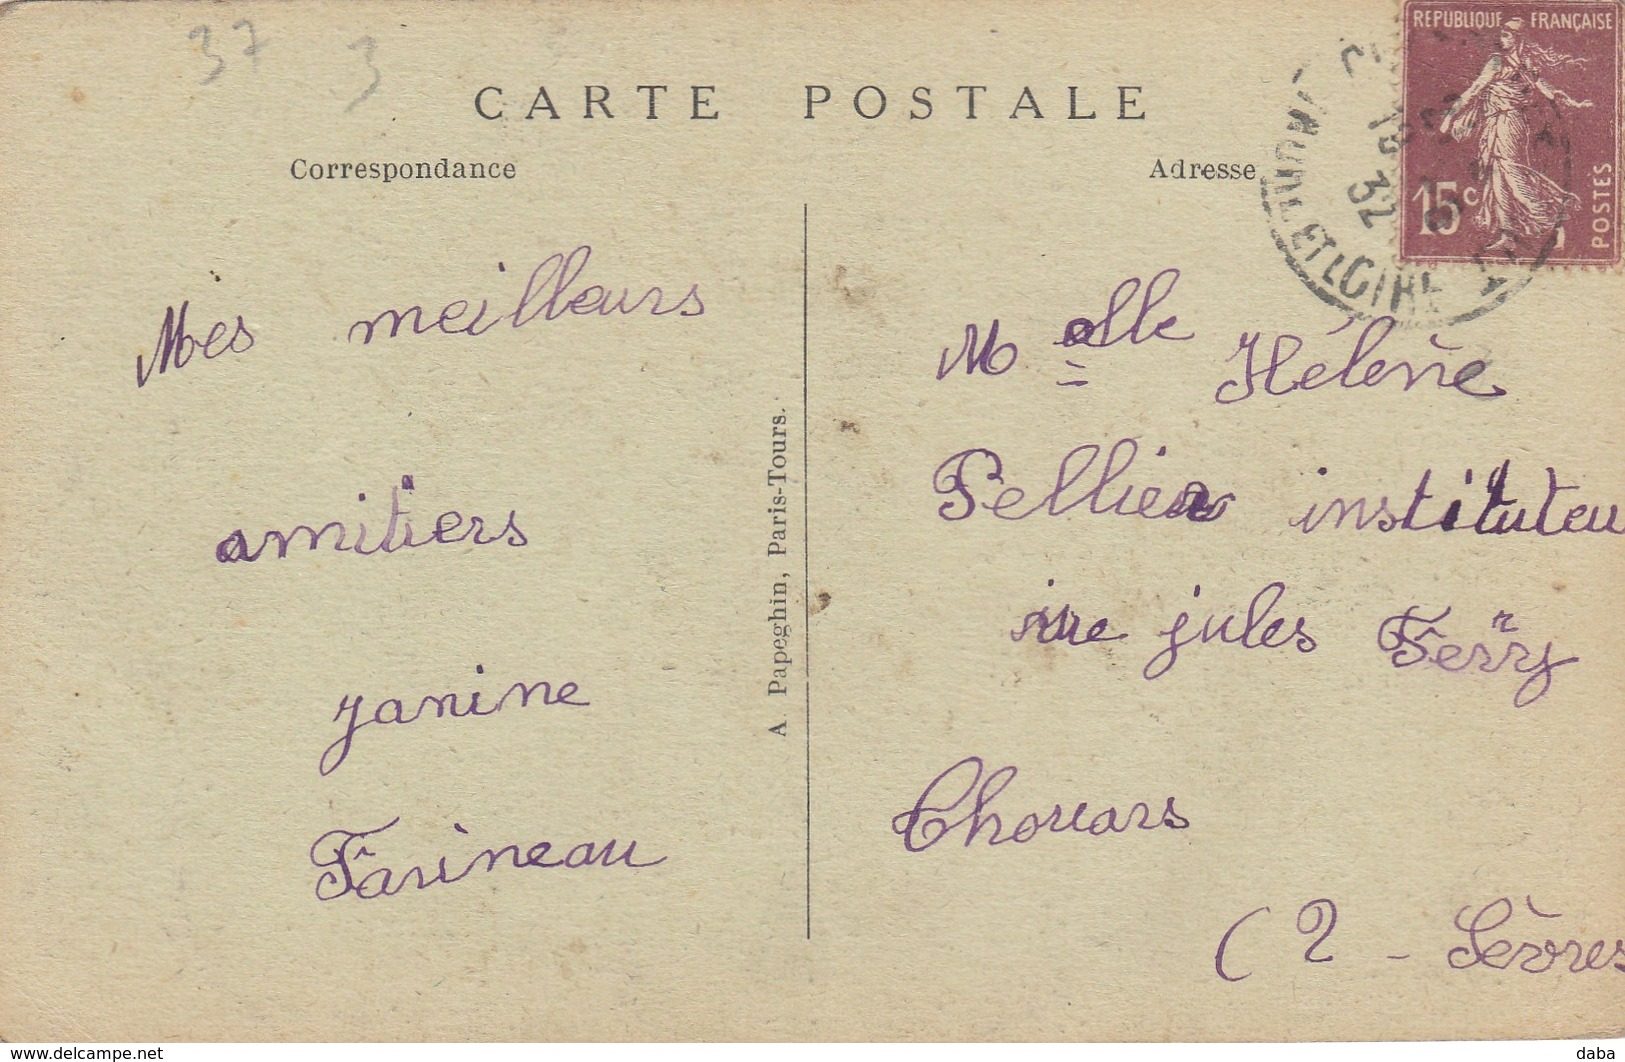 37 3
CARTE POSTALE
Correspondance
Adresse
REPUBLIQUE FRANÇAISE
15c
POSTES
32
ET LOIRE
Mes meilleurs
amitiers
janine
Farineau
A. Papeghin, Paris-Tours.
Melle Hélène
Pellier instituteu
rue jules Ferry
Thouars
(2 - Sèvres
www.delcampe.net
daba